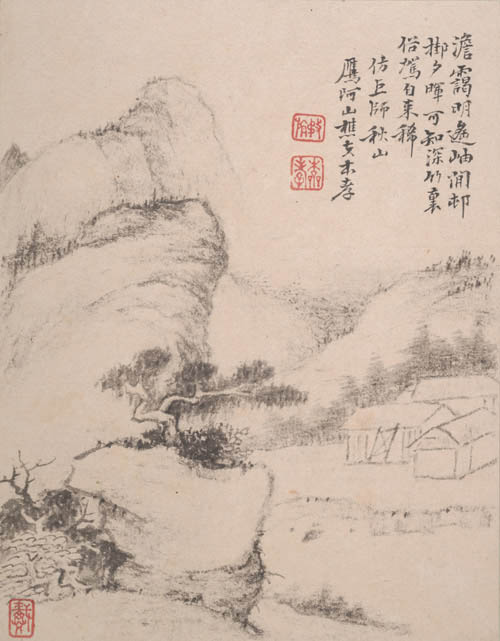 澹靄明遙岫閒邨
掛夕暉可知深竹裏
俗駕自來稀
仿巨師秋山
鷹阿山樵本孝
本孝